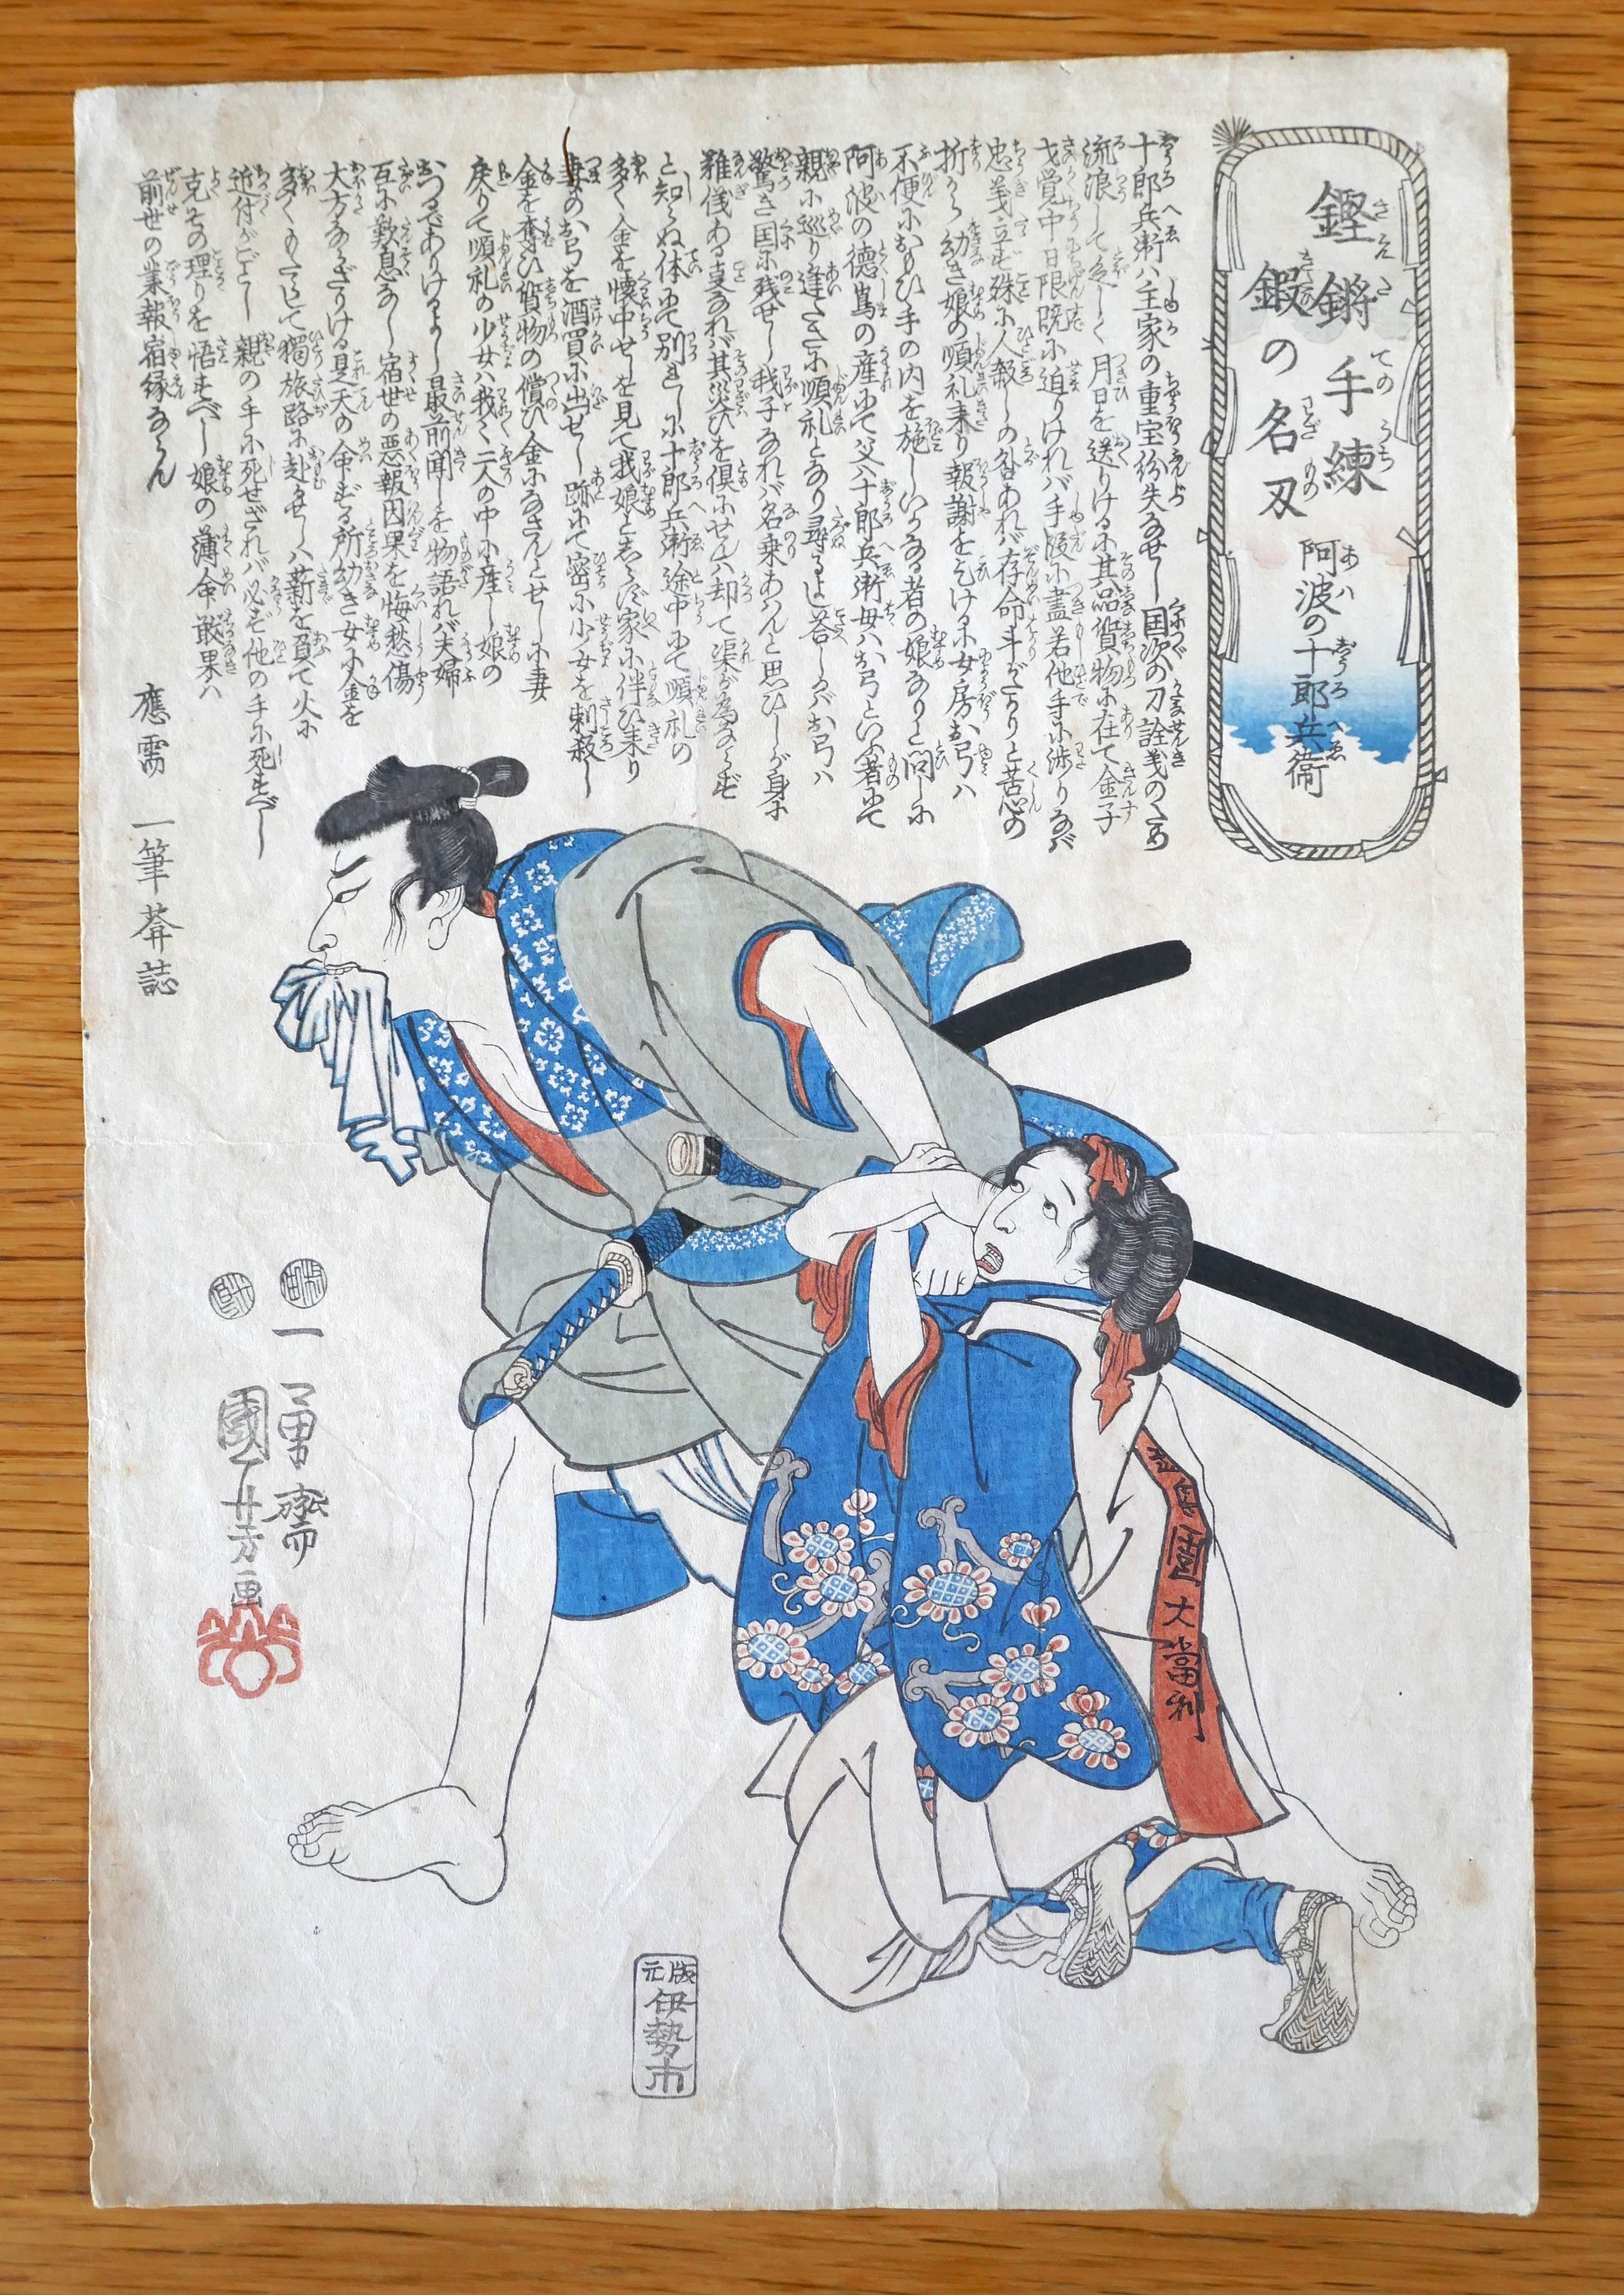 鏗鏘手練
鍜の名刃
阿波の十郎兵衛
十郎兵衛ハ主家の重宝紛失なせし国次の刀詮義のため
流浪して空しく月日を送りけるに其品貨物に在て金子
才覚中日限既に迫りけれバ手段に盡若他手に渉りなバ
忠義立ず殊に人殺しの咎あれバ存命斗がたりと苦心の
折から幼き娘の順礼来り報謝を乞けるに女房お弓ハ
不便におもひ手の内を施しいかなる者の娘なりと問しに
阿波の徳島の産にて父ハ十郎兵衛母ハお弓といふ者にて
親に巡り逢たさに順礼となり尋るよし答しバお弓ハ
驚き国に残せし我子なれバ名乗あハんと思ひしが身に
難儀ある支なれバ其災ひを倶にせんハ却て渠が為ならず
と知らぬ体にて別れしに十郎兵衛途中にて順礼の
多く金を懐中せしを見て我娘と志らず家に伴ひ来り
妻のお弓を酒買に出せし跡にて密に少女を刺殺し
金を奪ひ貨物の償ひ金になさんとせしに妻
戻りて順礼の少女ハ我々二人の中に産し娘の
おつるでありけるよし最前聞しを物語れバ夫婦
互に歎息なし宿世の悪報因果を悔愁傷
大方ならざりける是天の命ずる所幼き女に金を
多くもたらして獨旅路に赴せしハ薪を負て火に
近付がごとし親の手に死せざれバ必ず他の手に死すべし
克その理りを悟すべし娘の薄命敢果ハ
前世の業報宿縁ならん
應需 一筆葊誌
一勇齋
國芳画
國大當利
版元
伊勢市